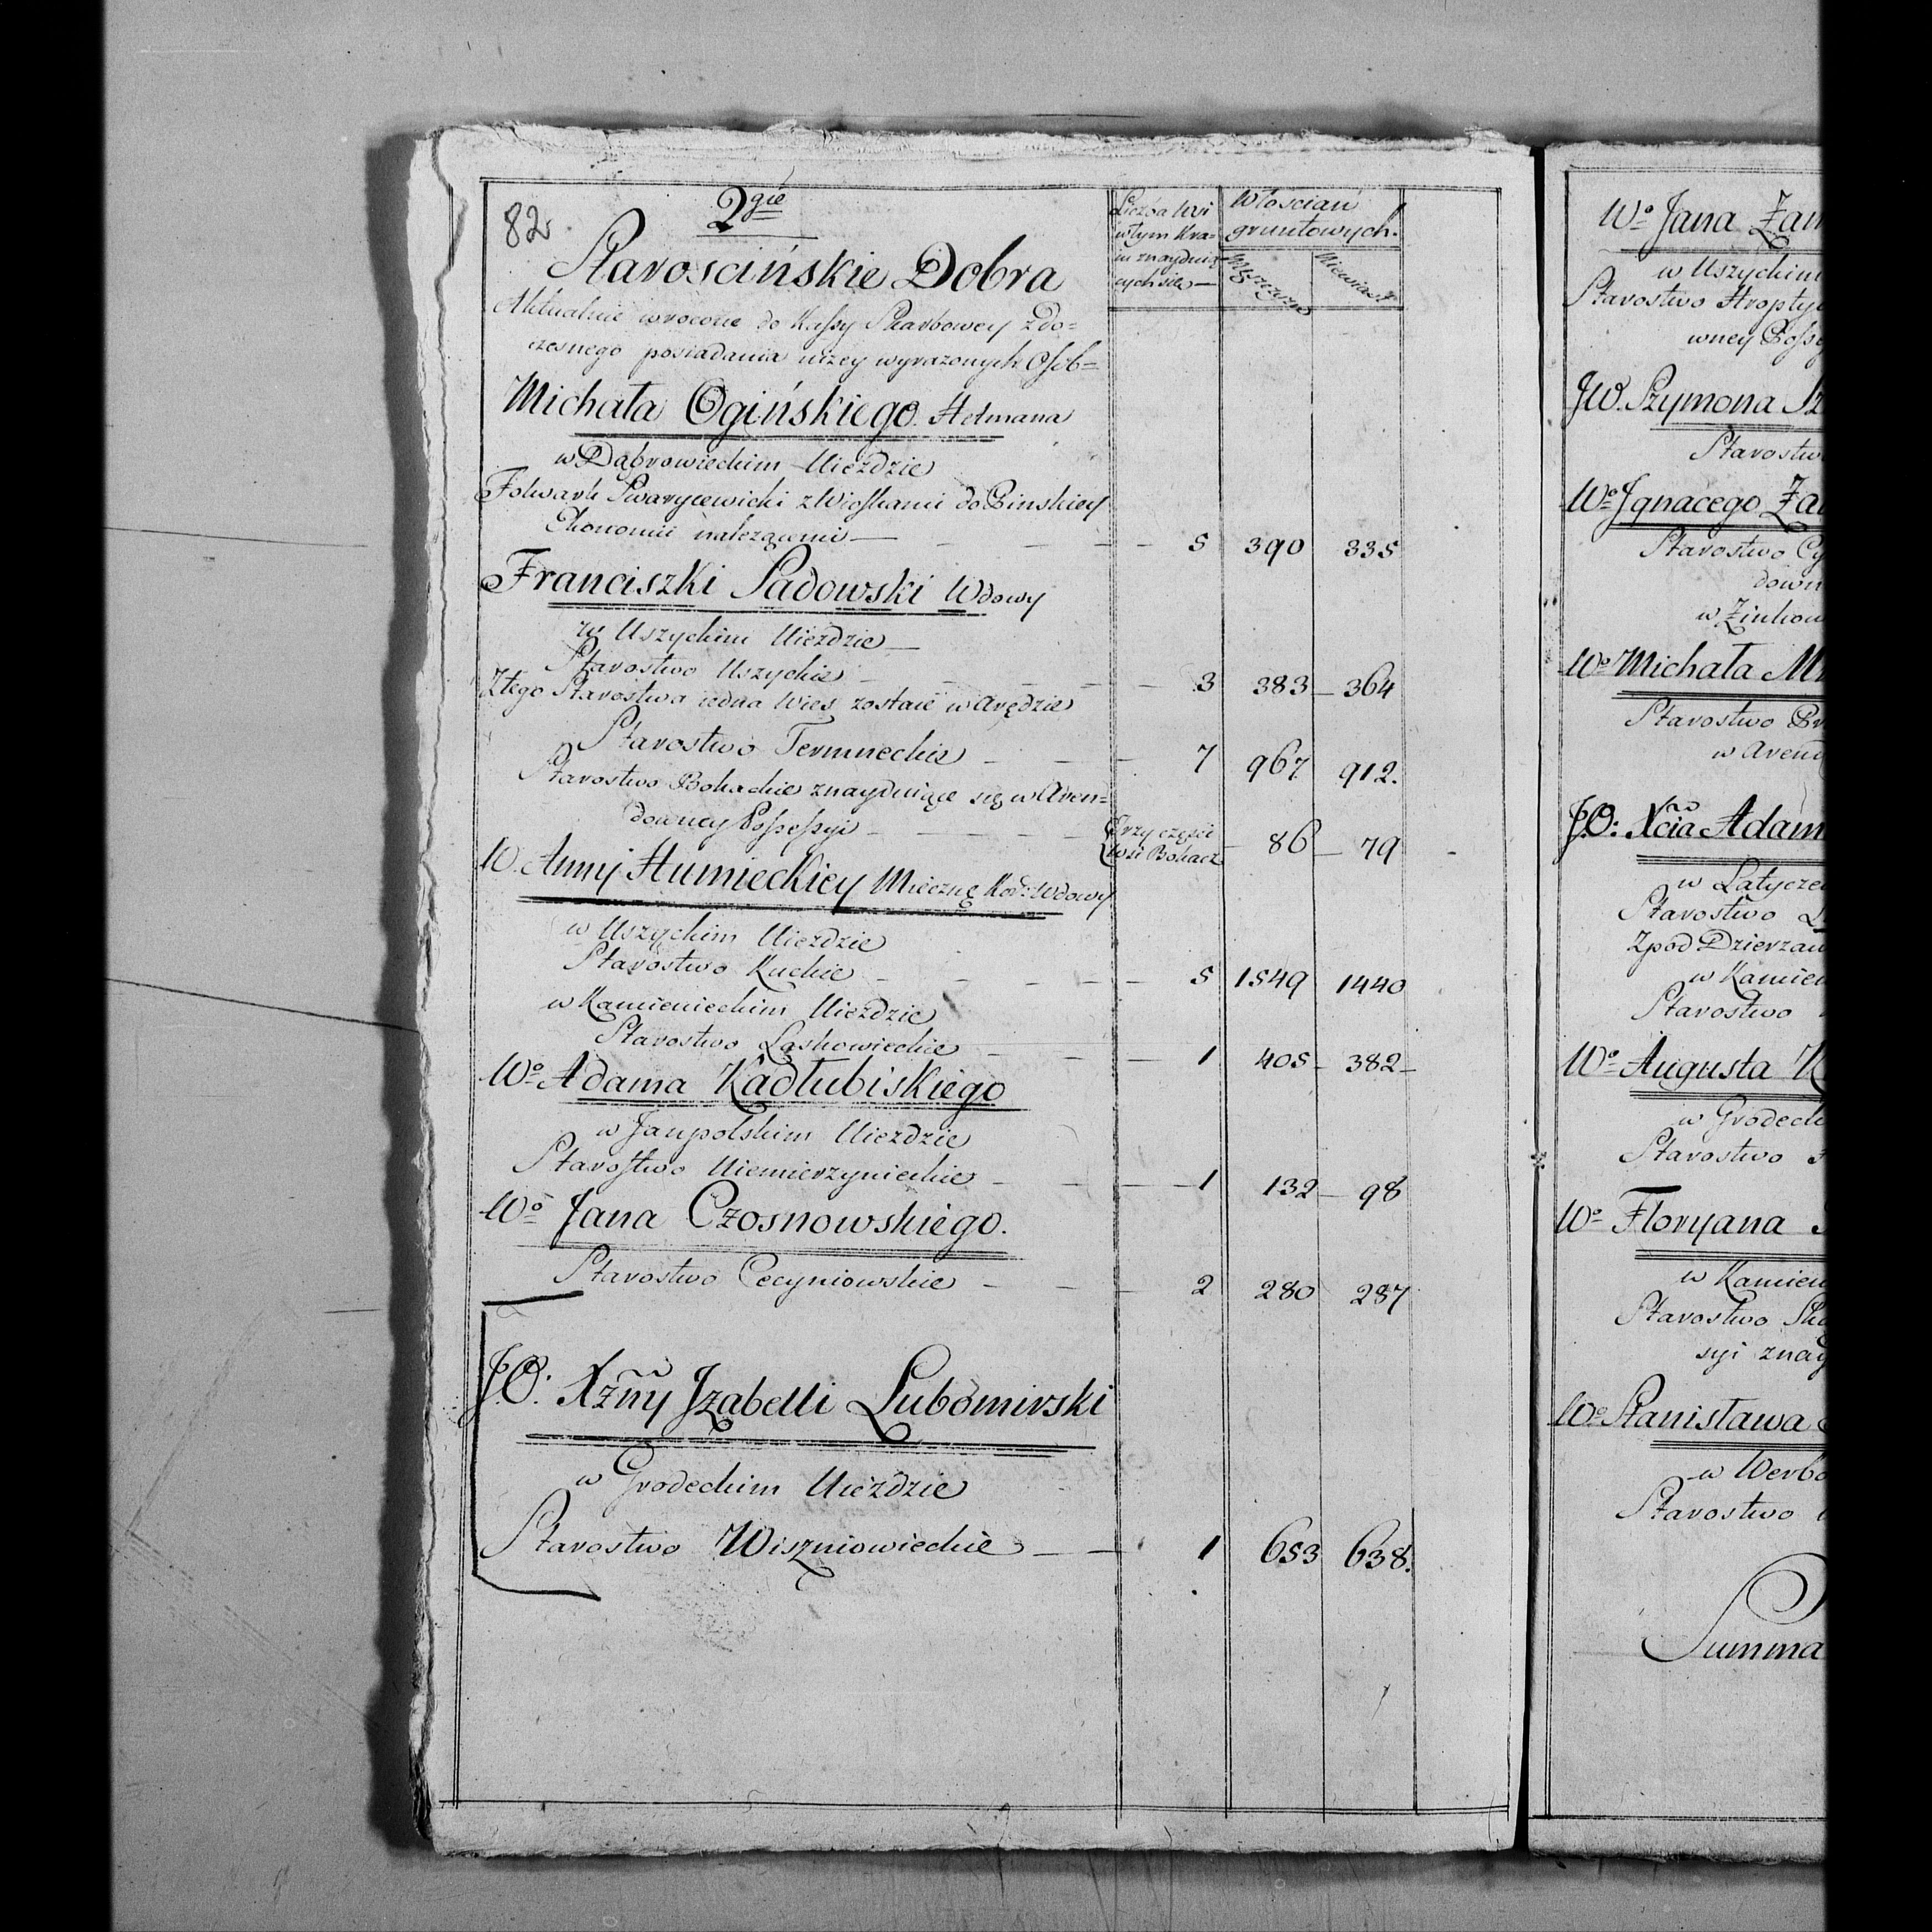 82.
2gie
Starościńskie Dobra
Aktualnie wrocone do Kassy Skarbowey z do=
czesnego posiadania niżey wyrażonych Osob=
Liczba Wsi
w tym Kra=
iu znayduią
cych się —
Włościan
gruntowych.
Męszczyzn
Niewiast
Michała Ogińskiego Hetmana
w Dąbrowieckim Uieździe
Folwark Swarycewicki z Wioskami do Pinskiey
Ekonomii należącemi — 5 390 335
Franciszki Sadowski Wdowy
w Uszyckim Uieździe —
Starostwo Uszyckie — 3 383 — 364
Z tego Starostwa iedna Wieś zostaie w Arędzie
Starostwo Termneckie — 7 967 912.
Starostwo Bohackie znayduiące się w Aren=
downey Possessyi — Trzy części
Wsi Bohacz — 86 — 79
W. Anny Humieckiey Miecznę Kor: Wdowy
w Uszyckim Uieździe
Starostwo Kuckie — 5 1549 1440
w Kamienieckim Uieździe
Starostwo Laskowieckie — 1 405 — 382 —
Wo Adama Kadłubiskiego
w Jampolskim Uieździe
Starostwo Niemierzynieckie — 1 132 — 98
Wo Jana Czosnowskiego.
Starostwo Cecyniowskie — 2 280 287
J.O: Xżny Jzabelli Lubomirski
w Grodeckim Uieździe
Starostwo Wiszniowieckie — 1 653 638.
Wo Jana
w Uszyckim
Starostwo
wney
JW. Szymona
Starostwo
Wo Jgnacego
Starostwo
w
Wo Michała
Starostwo
w
J.O: Xcia Adam
w
Starostwo
Zpod
w
Starostwo
Wo Augusta
w
Starostwo
Wo Floryana
w
Starostwo
syi
Wo Stanisława
w
Starostwo
Summa